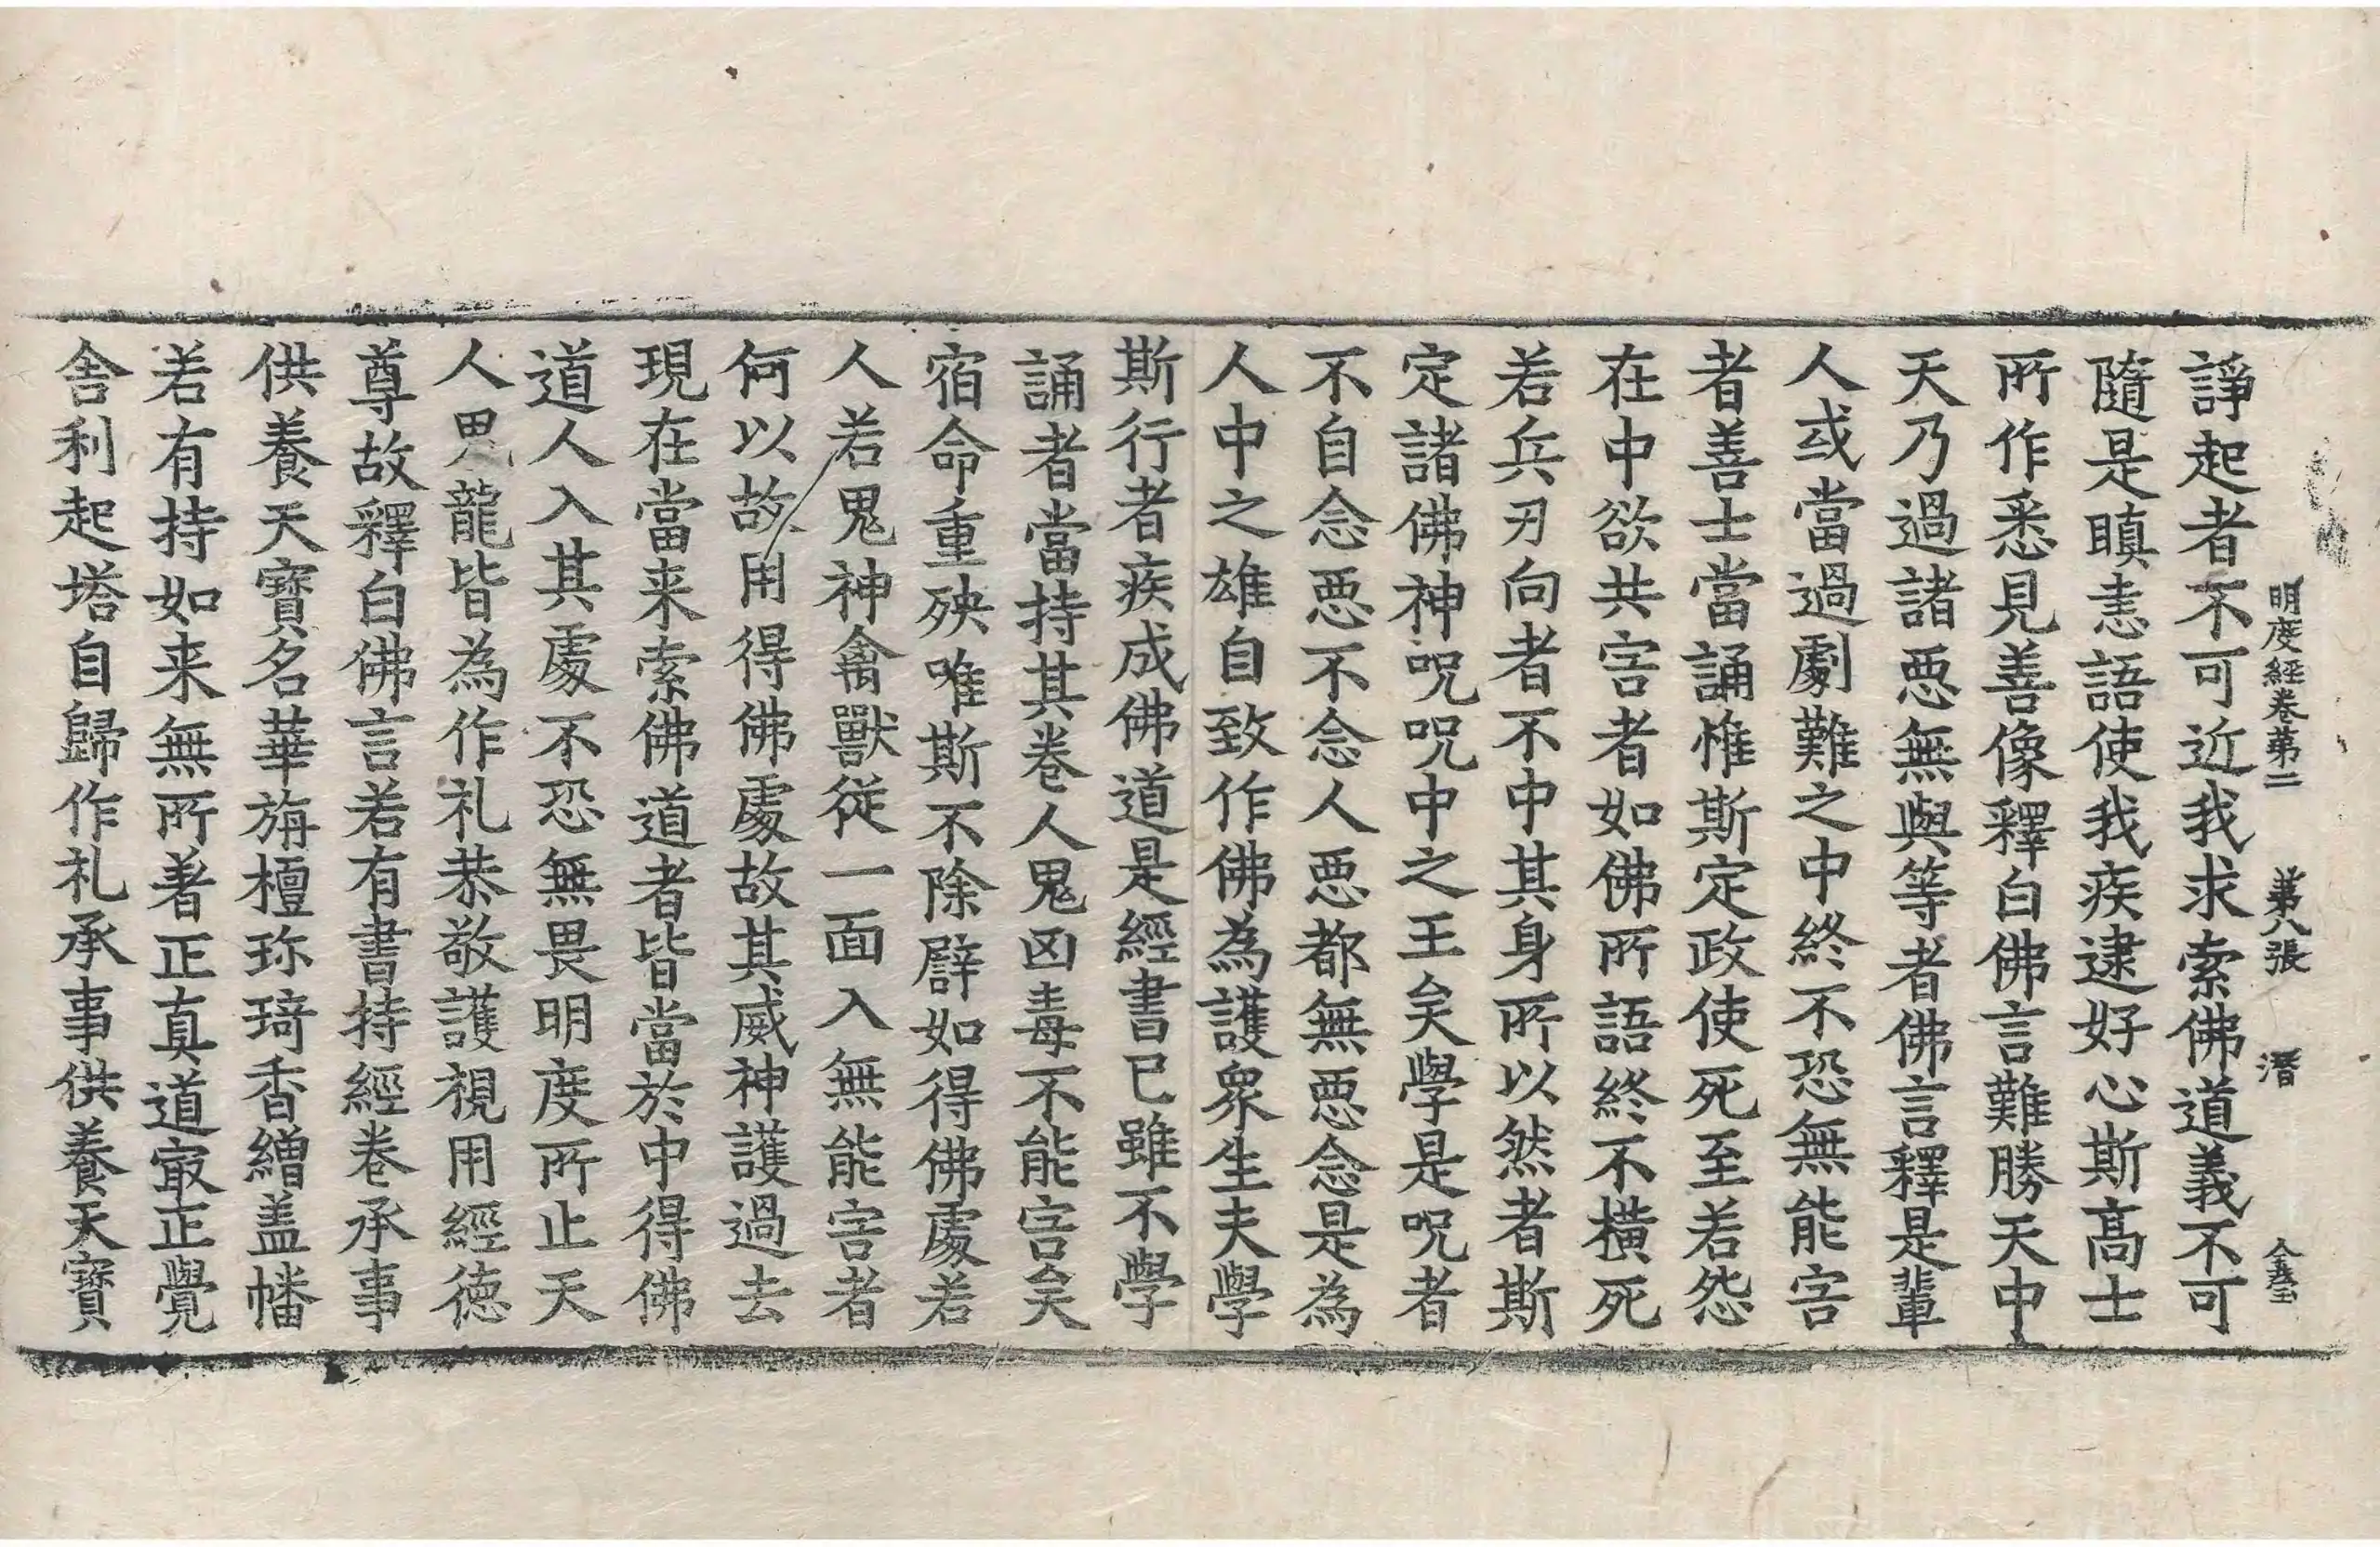 明度經卷第二 第八張 潛
諍起者不可近我求索佛道義不可
隨是瞋恚語使我疾逮好心斯髙士
所作悉見善像釋白佛言難勝天中
天乃過諸惡無與等者佛言釋是輩
人或當過劇難之中終不恐無能害
者善士當誦惟斯定政使死至若怨
在中欲共害者如佛所語終不橫死
若兵刃向者不中其身所以然者斯
定諸佛神呪呪中之王矣學是呪者
不自念惡不念人惡都無惡念是為
人中之雄自致作佛為護衆生夫學
斯行者疾成佛道是經書已雖不學
誦者當持其卷人鬼凶毒不能害矣
宿命重殃唯斯不除辟如得佛處若
人若鬼神禽獸従一面入無能害者
何以故用得佛處故其威神護過去
現在當来索佛道者皆當於中得佛
道人入其處不恐無畏明度所止天
人鬼龍皆為作礼恭敬護視用經德
尊故釋白佛言若有書持經卷承事
供養天寶名華旃檀珎琦香繒盖幡
若有持如来無所著正真道㝡正覺
舍利起塔自歸作礼承事供養天寶